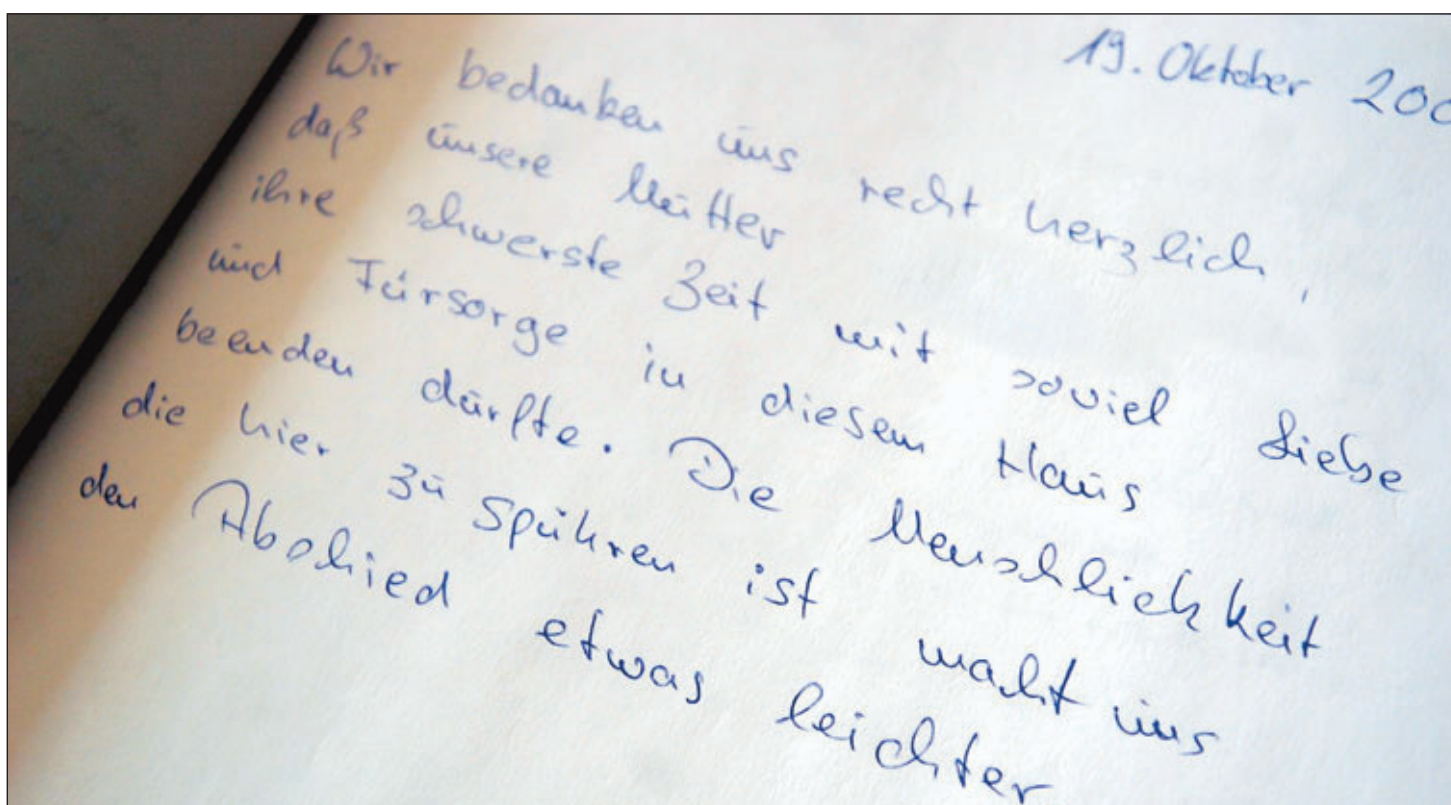 19. Oktober 200
Wir bedanken uns recht herzlich,
daß unsere Mutter
ihre schwerste Zeit mit soviel Liebe
und Fürsorge in diesem Haus
beenden durfte. Die Menschlichkeit
die hier zu spühren ist macht uns
den Abschied etwas leichter